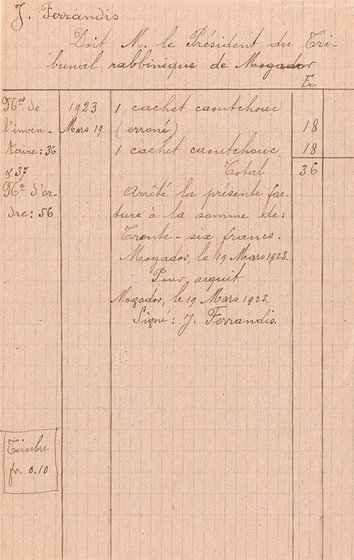 J. Ferrandis
Doit M. le Président du Tri-
bunal rabbinique de Mogador
Fr.
Nos de
l'inven-
taire: 36
& 37
No d'or-
dre: 56
1923
Mars 19
1 cachet caoutchouc
(erroné) 18
1 cachet caoutchouc 18
Total 36
Arrêté la présente fac-
ture à la somme de:
Trente-six francs.
Mogador, le 19 Mars 1923.
Pour acquit
Mogador, le 19 Mars 1923.
Signé: J. Ferrandis.
Timbre
fr. 0.10